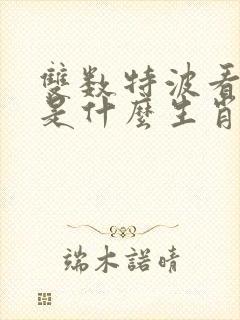 雙数特波看
是什麼生肖
端木諾晴